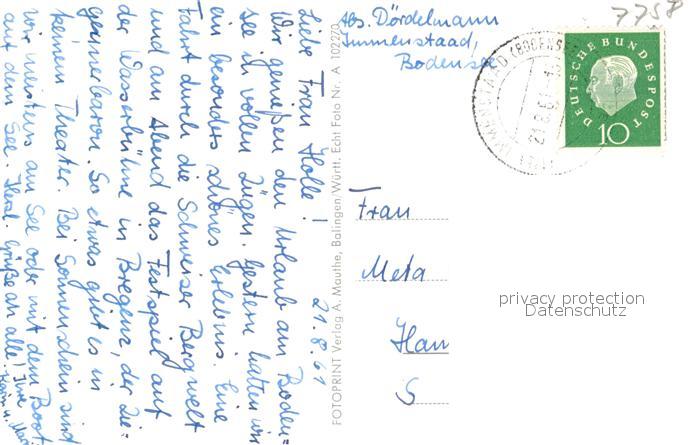 7758
Abs. Dördelmann
Immenstaad,
Bodensee
DEUTSCHE BUNDESPOST
10
IMMENSTAAD (BODENSEE)
21.8.61
21.8.61
Liebe Frau Holle!
Wir genießen den Urlaub am Boden=
see in vollen Zügen. Gestern hatten wir
ein besonders schönes Erlebnis. Eine
Fahrt durch die Schweizer Bergwelt
und am Abend das Festspiel auf
der Wasserbühne in Bregenz, der Zi=
geunerbaron. So etwas gibt es in
keinem Theater. Bei Sonnenschein sind
wir meistens am See oder mit dem Boot
auf dem See. Herzl. Grüße an alle! Ihre
FOTOPRINT Verlag A. Mauthe, Balingen/Württ. Echt Foto Nr. A 102270
Frau
Meta
Han
S
privacy protection
Datenschutz